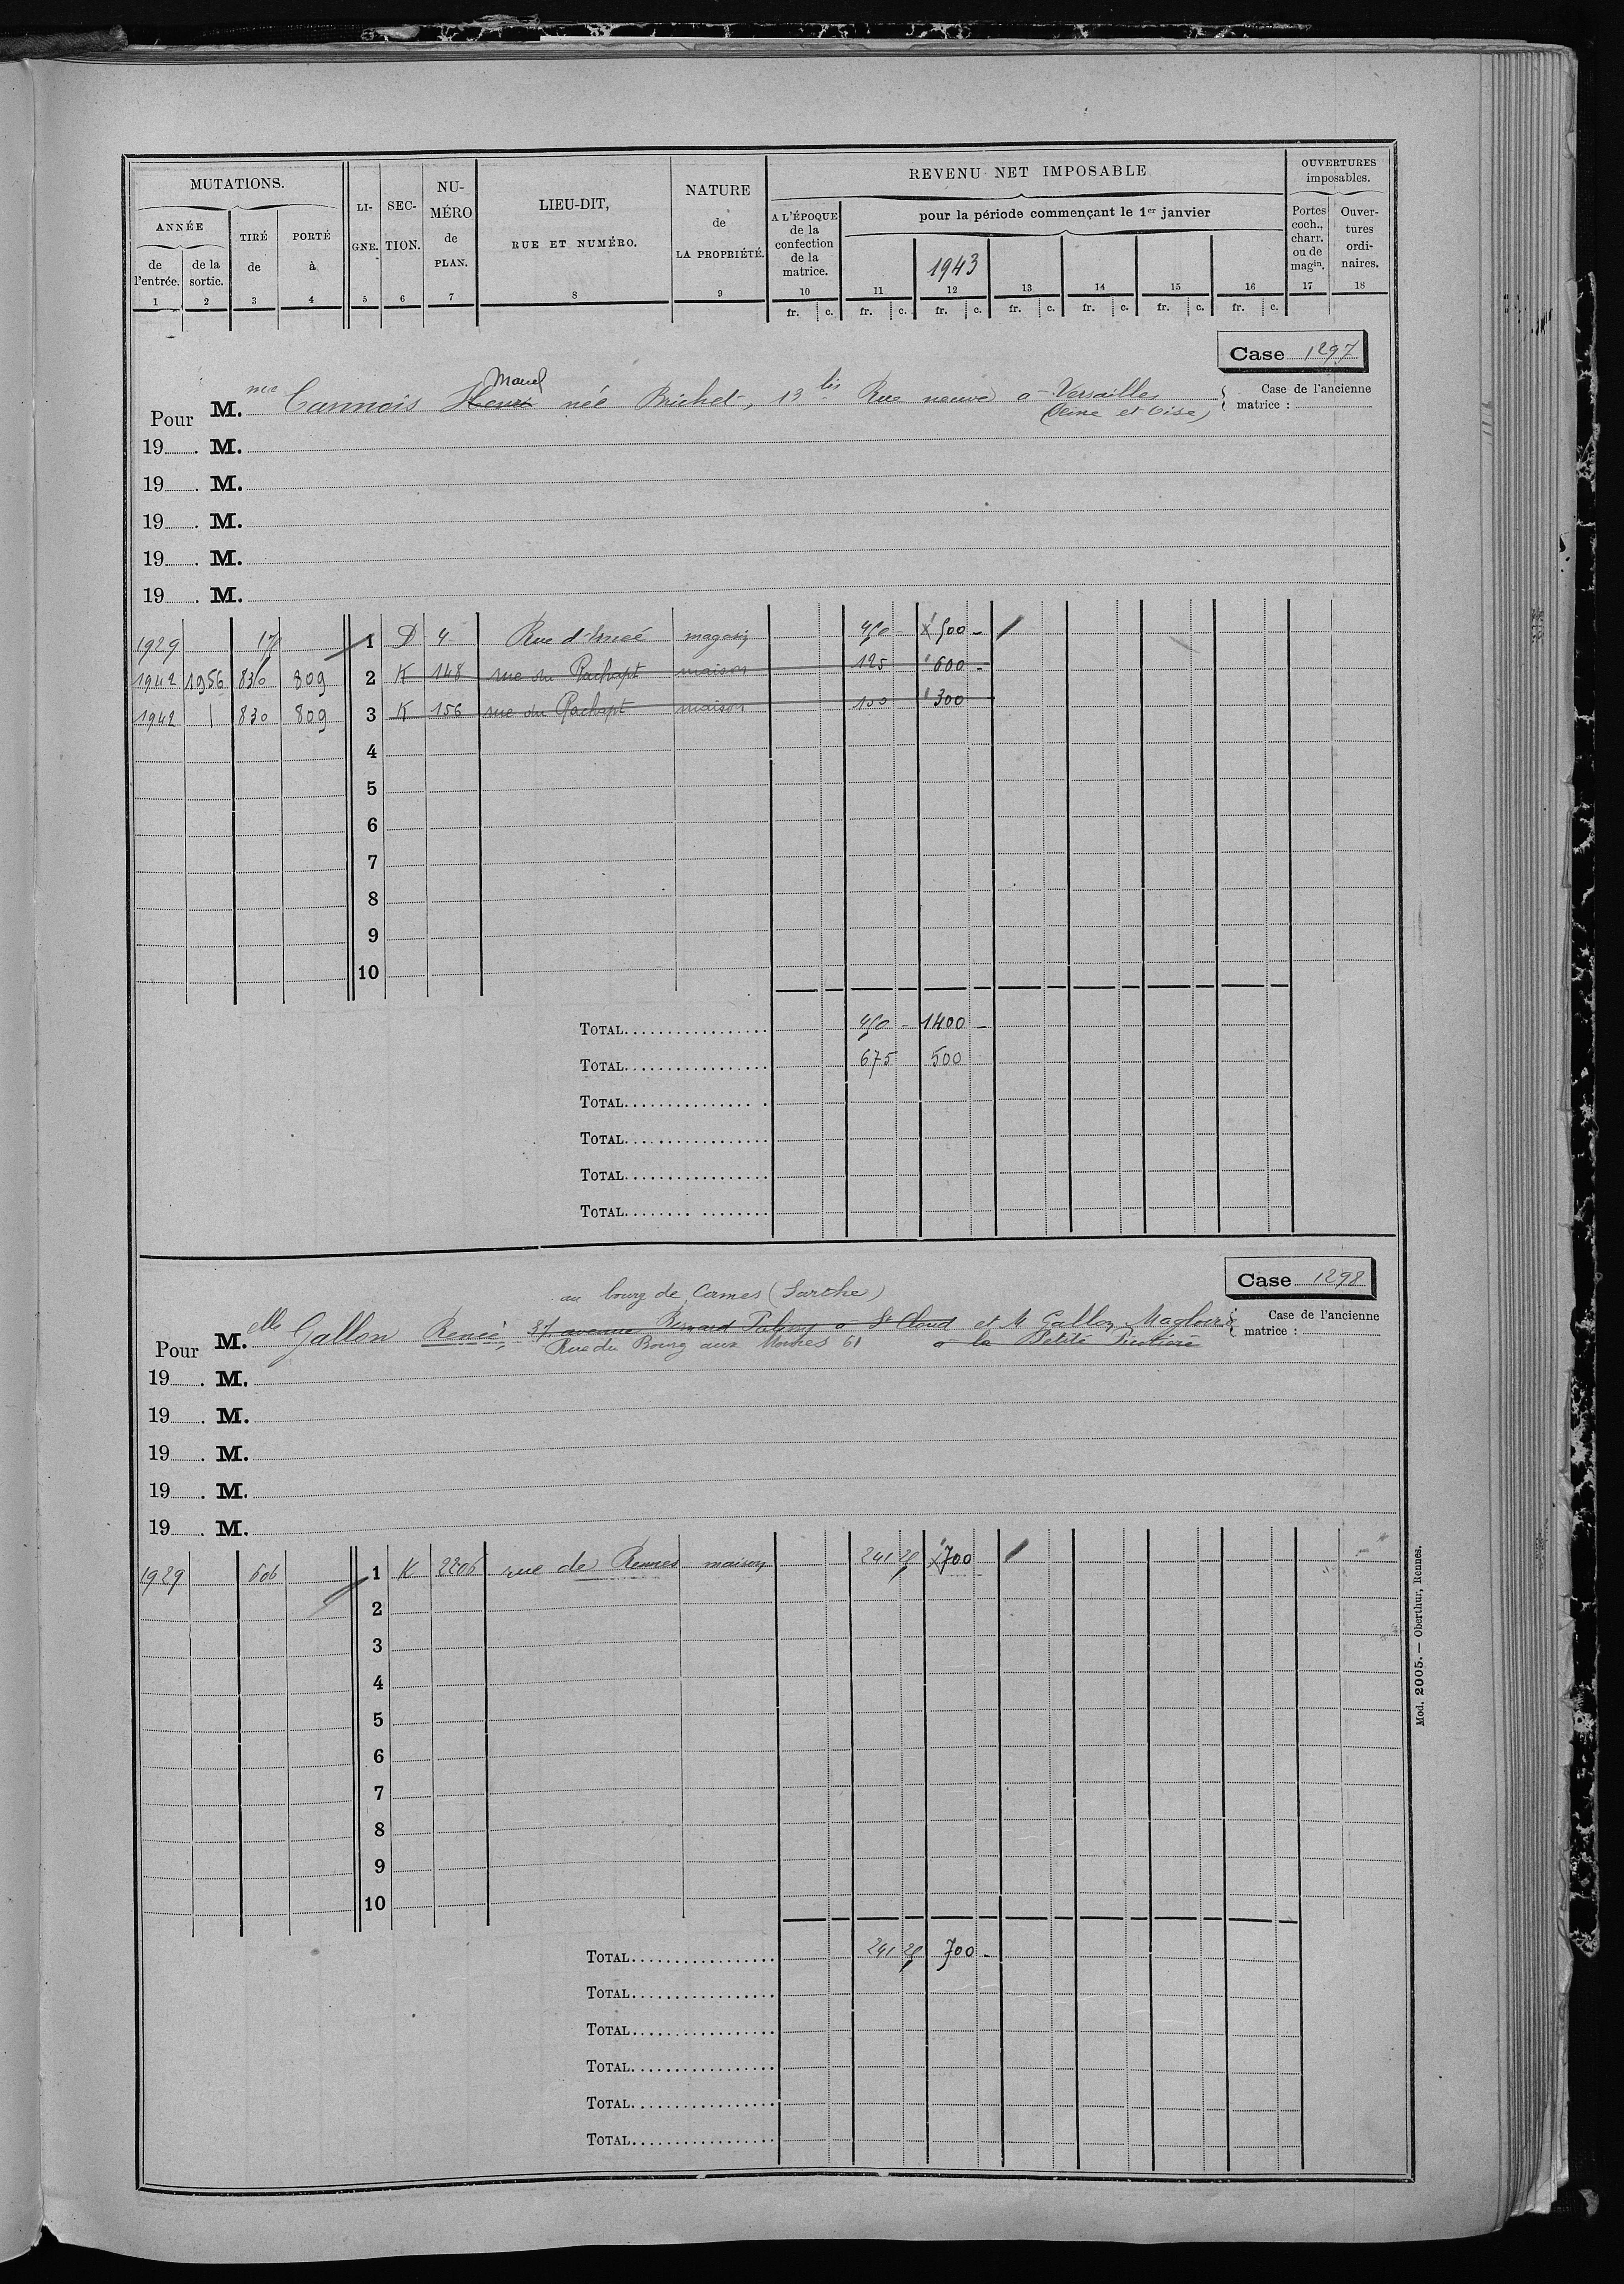 MUTATIONS.
ANNÉE
de l'entrée. de la sortie. TIRÉ de PORTÉ à
LI-GNE. SEC-TION. NU-MÉRO de PLAN.
LIEU-DIT, RUE ET NUMÉRO.
NATURE de LA PROPRIÉTÉ.
REVENU NET IMPOSABLE
A L'ÉPOQUE de la confection de la matrice.
pour la période commençant le 1er janvier
1943
OUVERTURES imposables.
Portes coch., charr. ou de magin. Ouver-tures ordi-naires.
1 2 3 4 5 6 7 8 9 10 11 12 13 14 15 16 17 18
fr. c. fr. c. fr. c. fr. c. fr. c. fr. c. fr. c.
Case 1297
Pour M.me Cannois Henri née Brichet, 13 bis Rue neuve à Versailles
(Seine et Oise)
Case de l'ancienne matrice :
19 . M.
19 . M.
19 . M.
19 . M.
19 . M.
1929 1 D 4 magasin 450 500 -
1942 1956 830 809 2 K 148 rue du maison 125 600 -
1942 830 809 3 K 156 rue du maison 100 300
4
5
6
7
8
9
10
TOTAL 450 - 1400 -
TOTAL 675 500
TOTAL
TOTAL
TOTAL
TOTAL
Case 1298
au bourg de (Sarthe)
Pour M.elle Gallon Renée, 37 avenue Bernard Palissy à St Cloud et M Gallon Magloire
Rue du Bourg aux Moines 61 à la Petite
Case de l'ancienne matrice :
19 . M.
19 . M.
19 . M.
19 . M.
19 . M.
1929 606 1 K 2206 rue de Rennes maison 241 25 700
2
3
4
5
6
7
8
9
10
TOTAL 241 25 700 -
TOTAL
TOTAL
TOTAL
TOTAL
TOTAL
Mod. 2005. — Oberthur, Rennes.